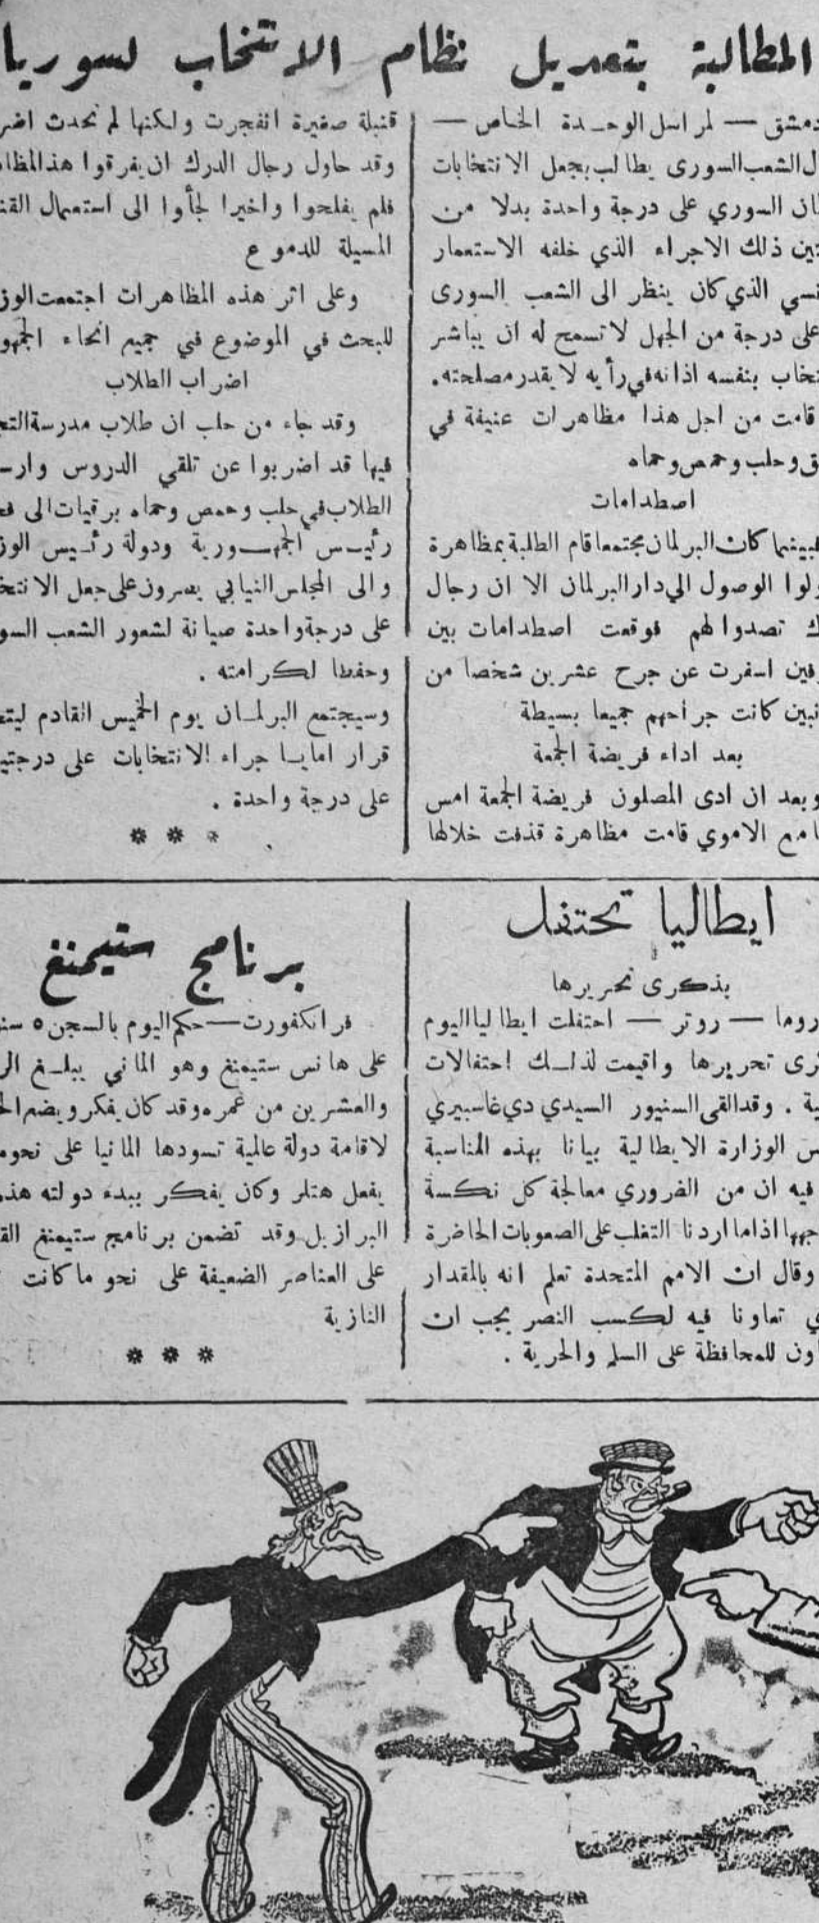 المطالبة بتعديل نظام الانتخاب لسوريا
دمشق — لمراسل الوحدة الخاص —
ل الشعب السورى يطالب بجعل الانتخابات
ان السوري على درجة واحدة بدلا من
تين ذلك الاجراء الذي خلفه الاستعمار
نسي الذي كان ينظر الى الشعب السورى
على درجة من الجهل لا تسمح له ان يباشر
تخاب بنفسه اذ انه في رأيه لا يقدر مصلحته.
قامت من اجل هذا مظاهرات عنيفة في
ق وحلب وحمص وحماه
اصطدامات
فبينما كان البرلمان مجتمعا قام الطلبة بمظاهرة
ولوا الوصول الي دار البرلمان الا ان رجال
ك تصدوا لهم فوقعت اصطدامات بين
فين اسفرت عن جرح عشرين شخصا من
نبين كانت جراحهم جميعا بسيطة
بعد اداء فريضة الجمعة
وبعد ان ادى المصلون فريضة الجمعة امس
امع الاموي قامت مظاهرة قذفت خلالها
قنبلة صغيرة انفجرت ولكنها لم تحدث اضر
وقد حاول رجال الدرك ان يفرقوا هذ المظا
فلم يفلحوا واخيرا لجأوا الى استعمال القن
المسيلة للدموع
وعلى اثر هذه المظاهرات اجتمعت الوز
للبحث في الموضوع في جميع انحاء الجمهو
اضراب الطلاب
وقد جاء من حلب ان طلاب مدرسة التج
فيها قد اضربوا عن تلقي الدروس وارس
الطلاب في حلب وحمص وحماه برقيات الى فخ
رئيس الجمهورية ودولة رئيس الوز
والى المجلس النيابي يصرون على جعل الانتخ
على درجة واحدة صيانة لشعور الشعب السو
وحفظا لكرامته .
وسيجتمع البرلمان يوم الخميس القادم ليتخ
قرار اما باجراء الانتخابات على درجتي
على درجة واحدة .
* * *
ايطاليا تحتفل
بذكرى تحريرها
روما — روتر — احتفلت ايطاليا اليوم
كرى تحريرها واقيمت لذلك احتفالات
ية . وقد القى السنيور السيدي دي غاسبيري
س الوزارة الايطالية بيانا بهذه المناسبة
فيه ان من الضروري معالجة كل نكسة
جهها اذا ما اردنا التغلب على الصعوبات الحاضرة
وقال ان الامم المتحدة تعلم انه بالمقدار
ي تعاونا فيه لكسب النصر يجب ان
اون للمحافظة على السلم والحرية .
برنامج ستيمنغ
فرانكفورت — حكم اليوم بالسجن ٥ سنو
على هانس ستيمنغ وهو الماني يبلغ الر
والعشرين من عمره وقد كان يفكر ويضع الخ
لاقامة دولة عالمية تسودها المانيا على نحو ما
يفعل هتلر وكان يفكر ببدء دولته هذ
البرازيل وقد تضمن برنامج ستيمنغ الق
على العناصر الضعيفة على نحو ما كانت
النازية
* * *